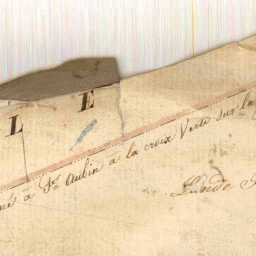 L E
à St Aubin à la croix Verte sur la